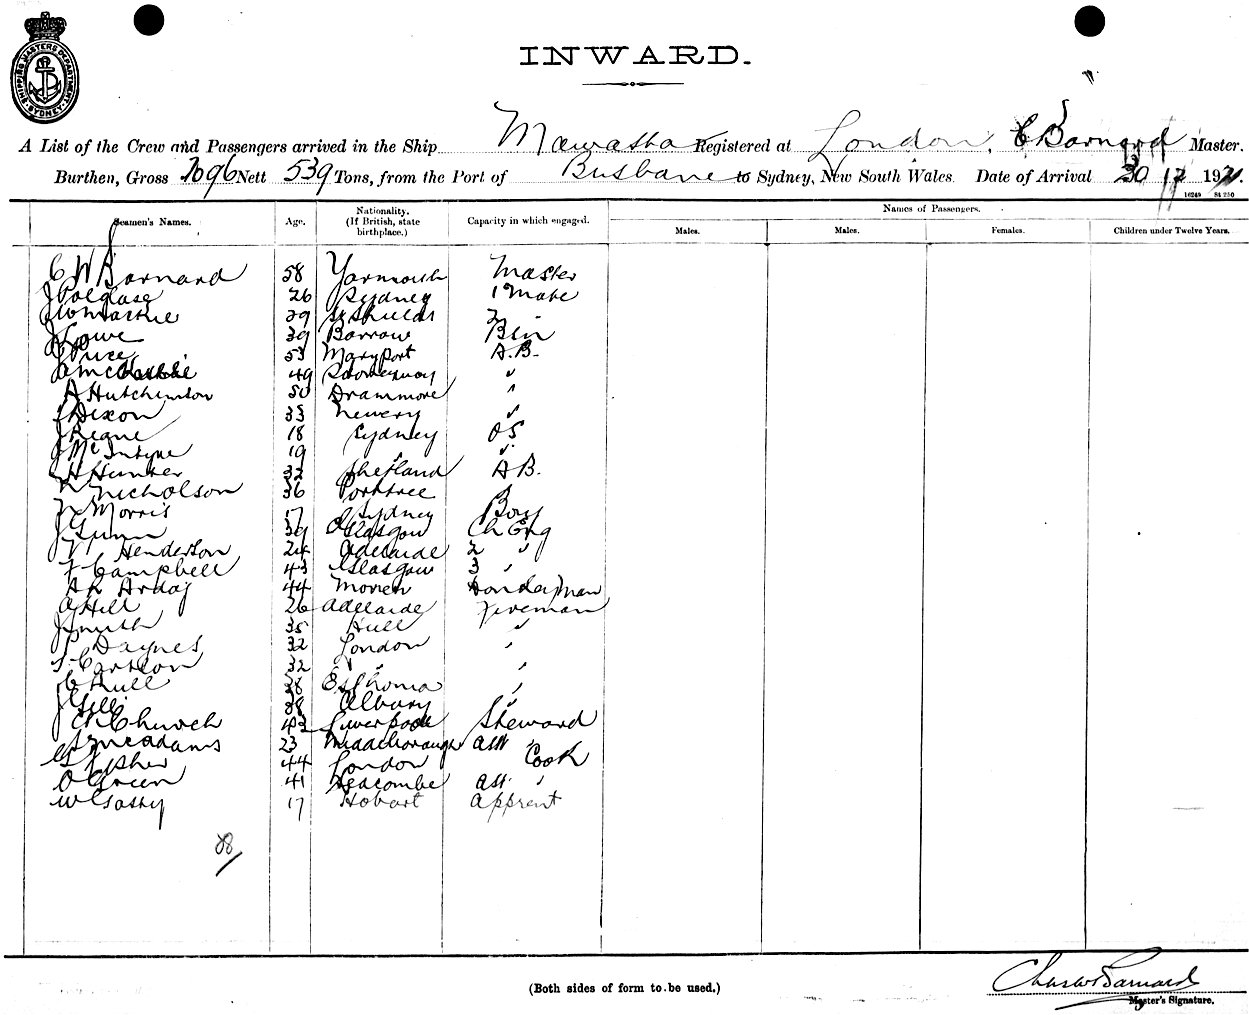 SHIPPING MASTERS DEPARTMENT SYDNEY
INWARD.
A List of the Crew and Passengers arrived in the Ship Registered at London, C Barnard Master.
Burthen, Gross 1096 Nett 539 Tons, from the Port of Brisbane to Sydney, New South Wales. Date of Arrival 30 12 19
16249 84 250
Seamen's Names. Age. Nationality. (If British, state birthplace.) Capacity in which engaged. Names of Passengers.
Males. Males. Females. Children under Twelve Years.
C W Barnard 58 Yarmouth Master
J Polglase 26 Sydney 1 Mate
39 Shields 2
J Lowe 39 Barrow
J Price 53 Maryport A.B.
49 "
A Hutchinson 50 Drammore "
J Dixon 35 Newry "
J Keane 18 Sydney OS
J McIntyre 19 " "
H Hunter 32 Shetland AB.
N Nicholson 36 Portree "
Morris 17 Sydney Boy
J Gunn 39 Glasgow Ch Eng
Henderson 24 Adelaide 2 "
F Campbell 43 Glasgow 3 "
44 Donkeyman
A Hill 26 Adelaide Fireman
J Smith 35 Hull "
Daynes 32 London "
32 " "
C Hull 38 "
J Gill 38 Albury "
C H Church 43 Liverpool Steward
McAdams 23 Middlesborough Asst "
G Fisher 44 London Cook
O Green 41 Seacombe Asst "
W 17 Hobart Apprent
28
(Both sides of form to be used.)
Chas W Barnard
Master's Signature.